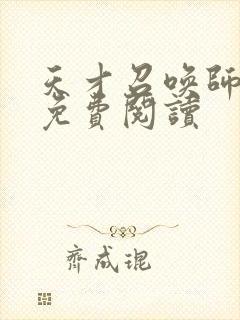 天才召喚師
免費閱讀
齊成琨